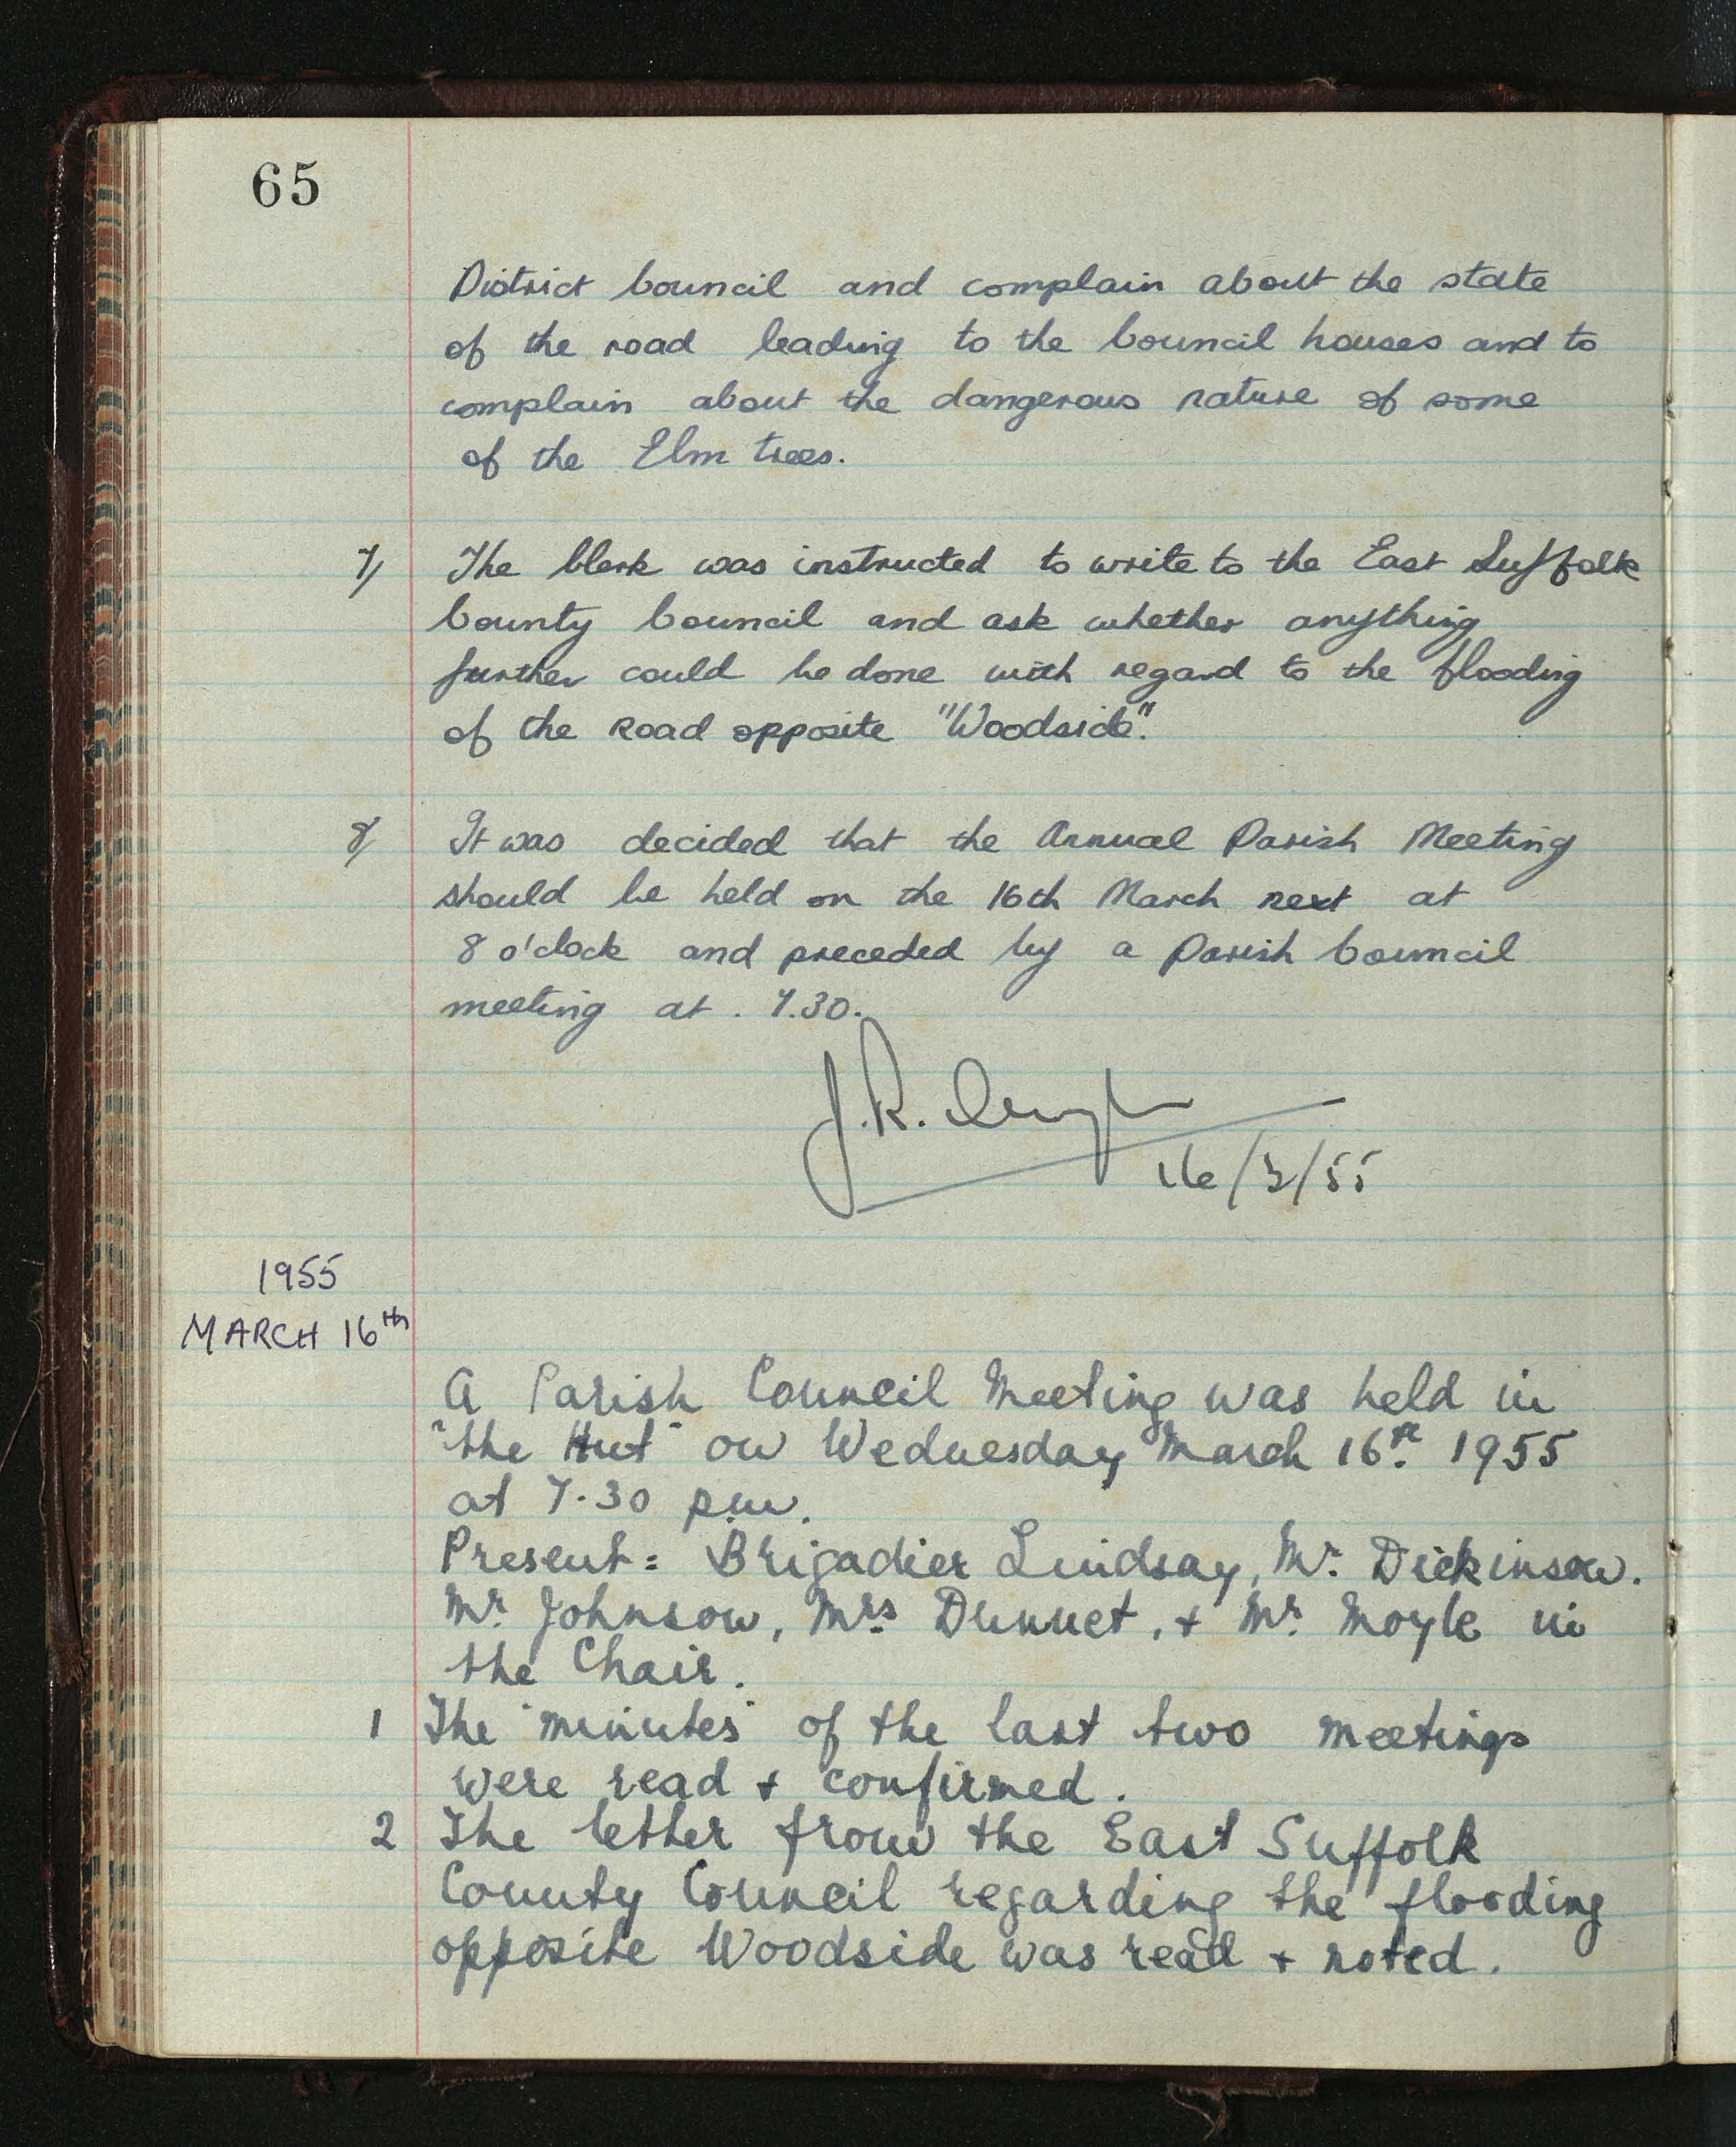 65
District Council and complain about the state
of the road leading to the Council houses and to
complain about the dangerous nature of some
of the Elm trees.
7/ The Clerk was instructed to write to the East Suffolk
County Council and ask whether anything
further could be done with regard to the flooding
of the Road opposite "Woodside".
8/ It was decided that the Annual Parish Meeting
should be held on the 16th March next at
8 o'clock and preceded by a Parish Council
meeting at . 7.30.
J.R.
16/3/55
1955
MARCH 16th
A Parish Council Meeting was held in
"the Hut" on Wednesday March 16th 1955
at 7.30 p.m.
Present: Brigadier Lindsay, Mr. Dickinson.
Mr Johnson, Mrs Dunnet, + Mr Moyle in
the Chair.
1 The "minutes" of the last two meetings
were read + confirmed.
2 The letter from the East Suffolk
County Council regarding the flooding
opposite Woodside was read + noted.